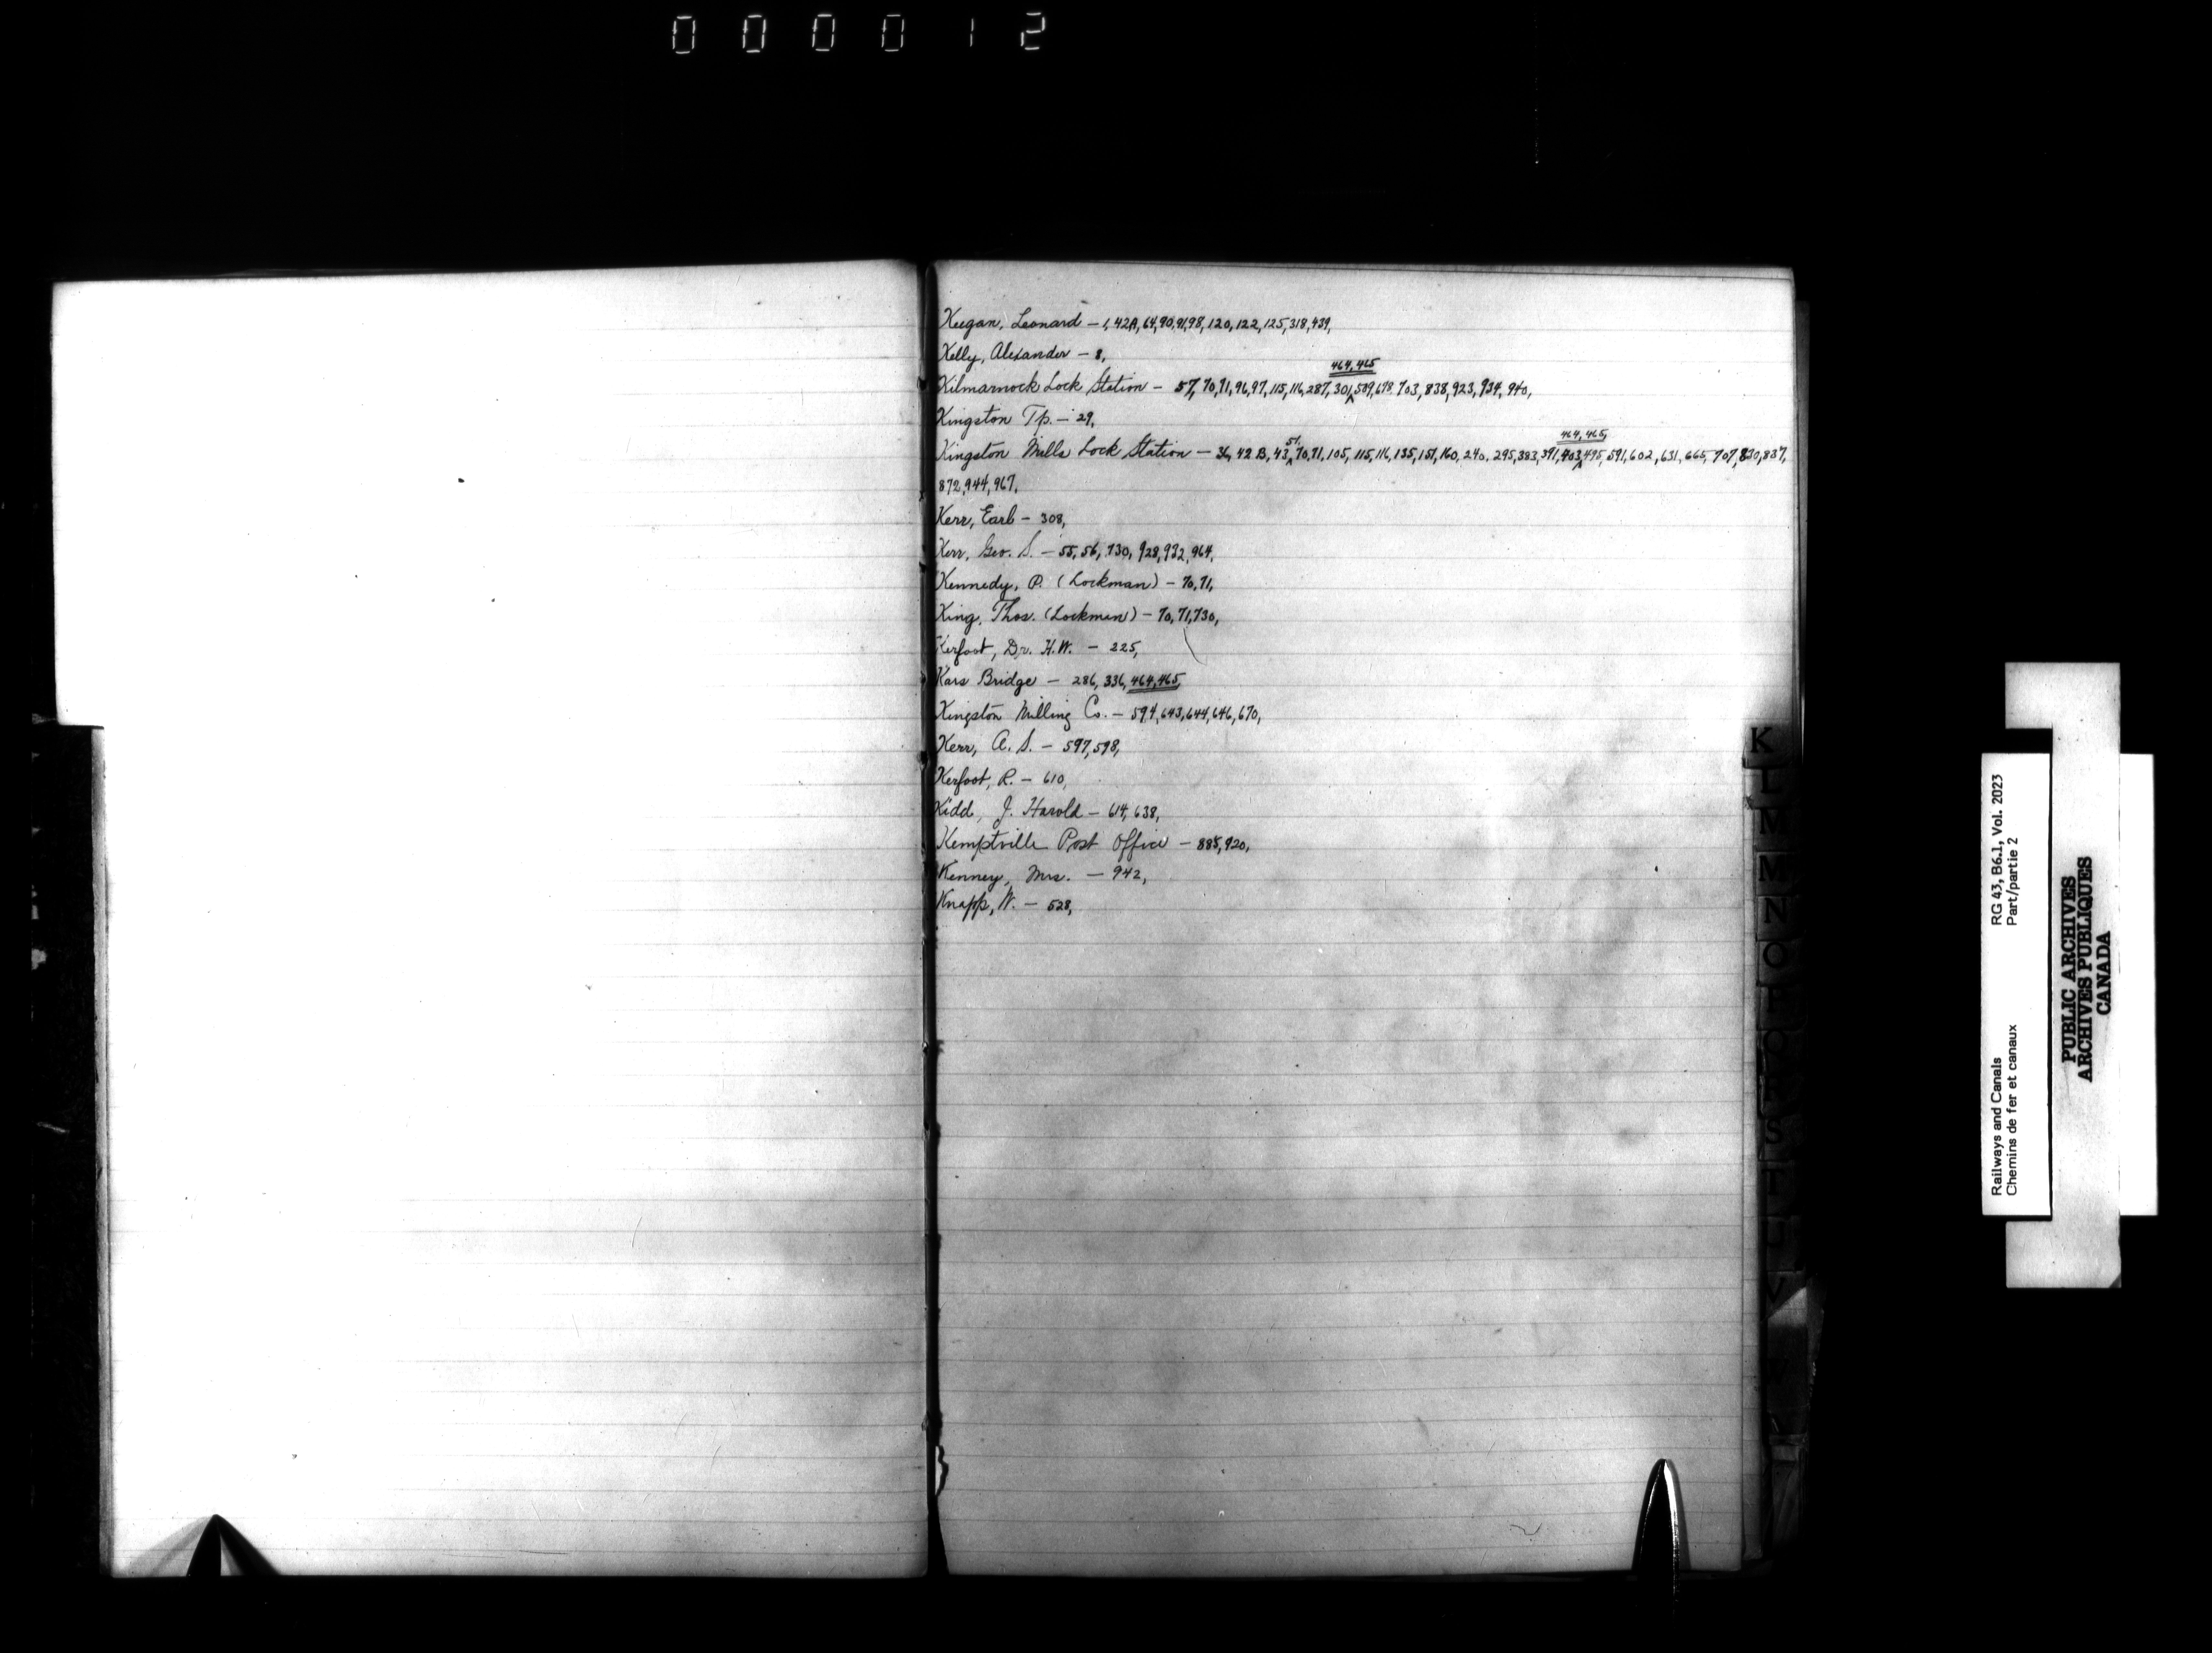 000012
Keegan, Leonard – 1, 42A, 64, 90, 91, 98, 120, 122, 125, 318, 439,
Kelly, Alexander – 8,
464, 465
Kilmarnock Lock Station – 57, 70, 71, 96, 97, 115, 116, 287, 301, 509, 678, 703, 838, 923, 934, 940,
Kingston Tp. – 29,
51, 464, 465,
Kingston Mills Lock Station – 36, 42 B, 43, 70, 71, 105, 115, 116, 135, 151, 160, 240, 295, 383, 391, 403, 495, 591, 602, 631, 665, 707, 830, 837,
872, 944, 967,
Kerr, Earl – 308,
Kerr, Geo. S. – 55, 56, 730, 928, 932, 964,
Kennedy, P. (Lockman) – 70, 71,
King, Thos. (Lockman) – 70, 71, 730,
Kerfoot, Dr. H.W. – 225,
Kars Bridge – 286, 336, 464, 465,
Kingston Milling Co. – 594, 643, 644, 646, 670,
Kerr, A. S. – 597, 598,
Kerfoot, R. – 610,
Kidd, J. Harold – 614, 638,
Kemptville Post Office – 885, 920,
Kenney, Mrs. – 942,
Knapp, W. – 528,
K
L
M
M
N
O
P
Q
R
S
T
U
V
Railways and Canals RG 43, B6.1, Vol. 2023
Chemins de fer et canaux Part/partie 2
PUBLIC ARCHIVES
ARCHIVES PUBLIQUES
CANADA